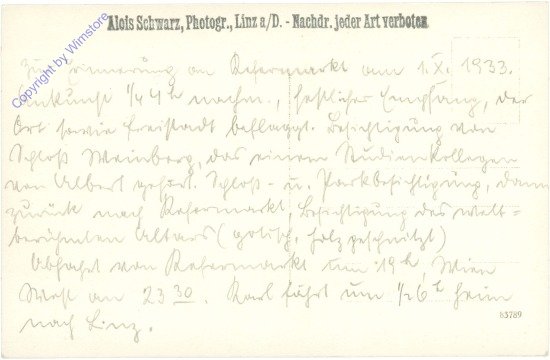 Alois Schwarz, Photogr., Linz a/D. - Nachdr. jeder Art verboten
Copyright by Wimstore
Zur Erinnerung an Kefermarkt am 1.X.1933.
Ankunft 1/4 4h nachm., festlicher Empfang, der
Ort sowie Freistadt beflaggt. Besichtigung von
Schloß Weinberg, das einem Studienkollegen
von Albert gehört. Schloß- u. Parkbesichtigung, dann
zurück nach Kefermarkt, Besichtigung des welt=
berühmten Altars (gotisch, holzgeschnitzt)
Abfahrt von Kefermarkt um 19h, Wien
West an 23 30. Karl fährt um 1/2 6h heim
nach Linz.
83789